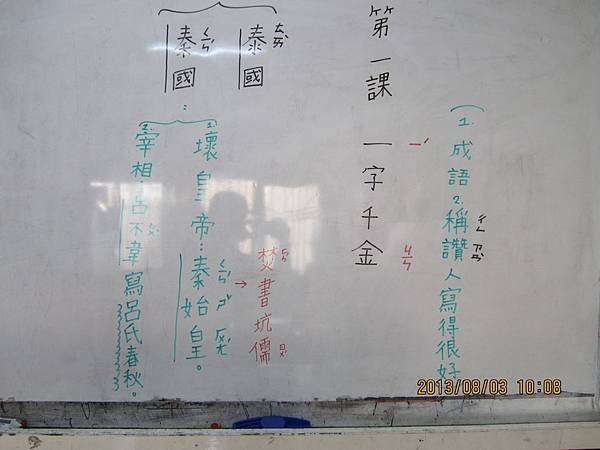 第一課 一字千金
1.成語 2.稱讚人寫得很好
泰國
秦國:
1.壞皇帝:秦始皇。
→焚書坑儒
2.宰相:呂不韋寫呂氏春秋。
2013/08/03 10:08